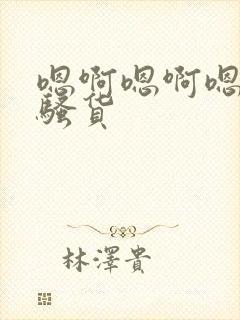 嗯啊嗯啊嗯
骚货
林澤貴